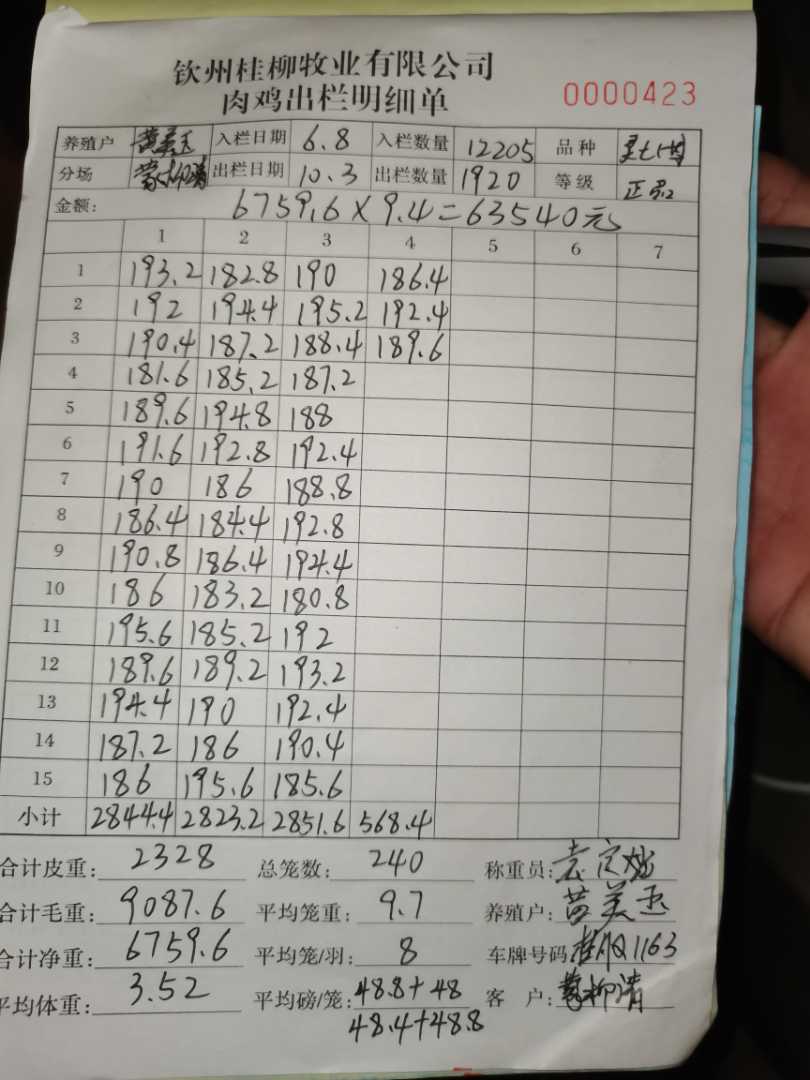 钦州桂柳牧业有限公司
肉鸡出栏明细单 0000423
养殖户 黄美玉 入栏日期 6.8 入栏数量 12205 品种
分场 蒙柳清 出栏日期 10.3 出栏数量 1920 等级 正品
金额: 6759.6×9.4=63540元
1 2 3 4 5 6 7
1 193.2 182.8 190 186.4
2 192 194.4 195.2 192.4
3 190.4 187.2 188.4 189.6
4 181.6 185.2 187.2
5 189.6 194.8 188
6 191.6 192.8 192.4
7 190 186 188.8
8 186.4 184.4 192.8
9 190.8 186.4 194.4
10 186 183.2 180.8
11 195.6 185.2 192
12 189.6 189.2 193.2
13 194.4 190 192.4
14 187.2 186 190.4
15 186 195.6 185.6
小计 2844.4 2823.2 2851.6 568.4
合计皮重: 2328 总笼数: 240 称重员:
合计毛重: 9087.6 平均笼重: 9.7 养殖户: 黄美玉
合计净重: 6759.6 平均笼/羽: 8 车牌号码: 1163
平均体重: 3.52 平均磅/笼: 48.8+48 客 户: 蒙柳清
48.4+48.8